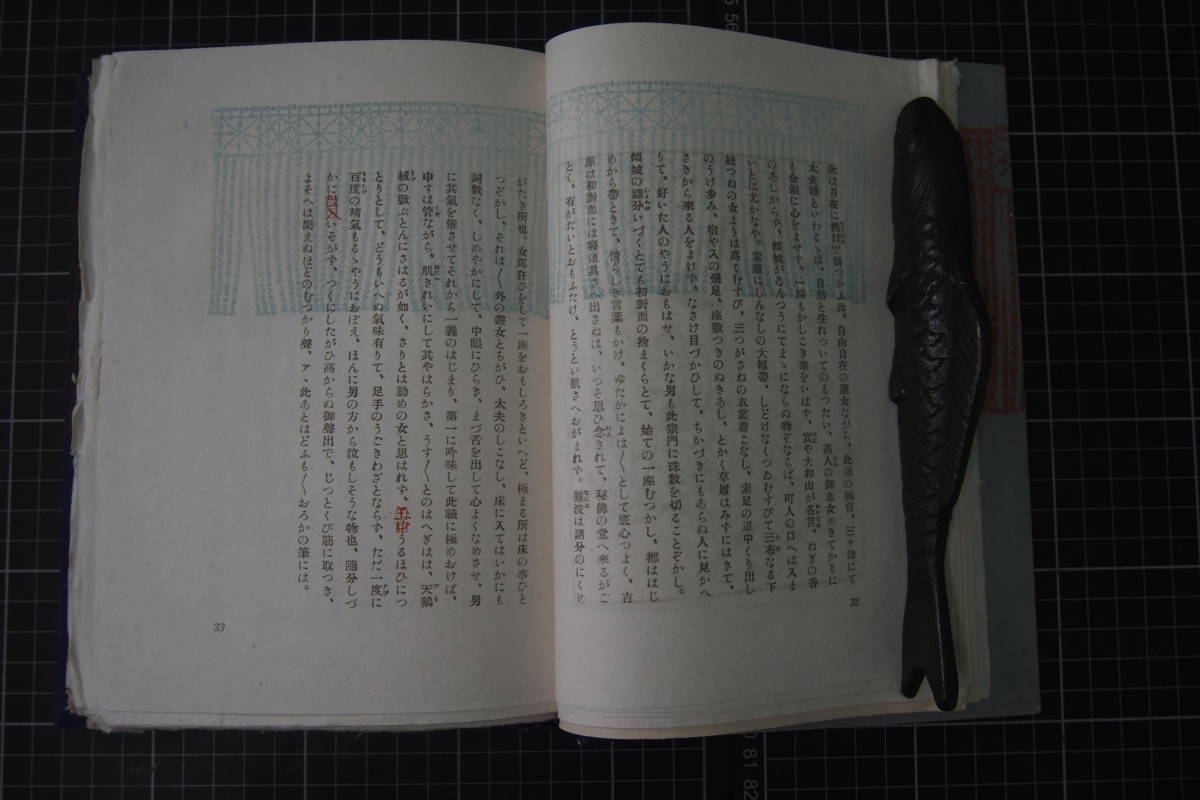 太夫職といわるゝは、自然と生れついてのもつたい、高人の御息女めきてかりに
も金銀に心をよせず、一座もかしこき事をいはず、
いとは尤かなや。素顔にしんなしの大幅帯、しどけなくつゐむすびて三布なる下
紐つねの女よりは高くむすび、三つがさねの衣裳着こなし、素足の道中くり出し
のうけ歩み、宿や入の飛足、座敷つきのぬきあし、とかく草履はみずにはきて、
さきから來る人をよけず、なさけ目づかひして、ちかづきにもあらぬ人に見かへ
りて、好いた人のやうにおもはせ、いかな男も此宗門に珠數を切ることぞかし。
傾城の諸分いづくとても初對面の捨まくらとて、始ての一座むつかし、都ははじ
めから帶ときて、情らしき言葉もかけ、ゆたかによは〳〵として底心つよく、吉
原は初對面には寢道具さへ出さぬは、いつそ思ひ念されて、秘佛の堂へ來るがご
とく、有がたいとおもふたけ、とうとい肌さへおがまれず。難波は諸分のにくめ
32
がたき所也。女郎狂ひをして一座をおもしろきといへど、極まる所は床の事ひと
つぞかし、それは〳〵外の遊女とちがひ、太夫のしこなし、床に入てはいかにも
詞數なく、しめやかにして、中眼にひらき、まづ舌を出して心よくなめさせ、男
に其氣を催させてそれから一義のはじまり、第一に吟味して此職に極めおけば、
申すは管ながら、肌きれいにして其やはらかさ、うす〳〵とのはへぎはは、天鵝
絨の敷ぶとんにさはるが如く、さりとは勤めの女と思はれず、玉中うるほひにつ
とりとして、どうもいへぬ氣味有りて、足手のうごきわざとならず、ただ一度に
百度の精氣もるゝやうにおぼえ、ほんに男の方から泣もしそうな物也、隨分しづ
かに出入いそがず、つくにしたがひ高からぬ御聲出で、じつとくび筋に取つき、
よそへは聞えぬほどのむつかり聲、ア、此あとはどふも〳〵おろかの筆には。
33